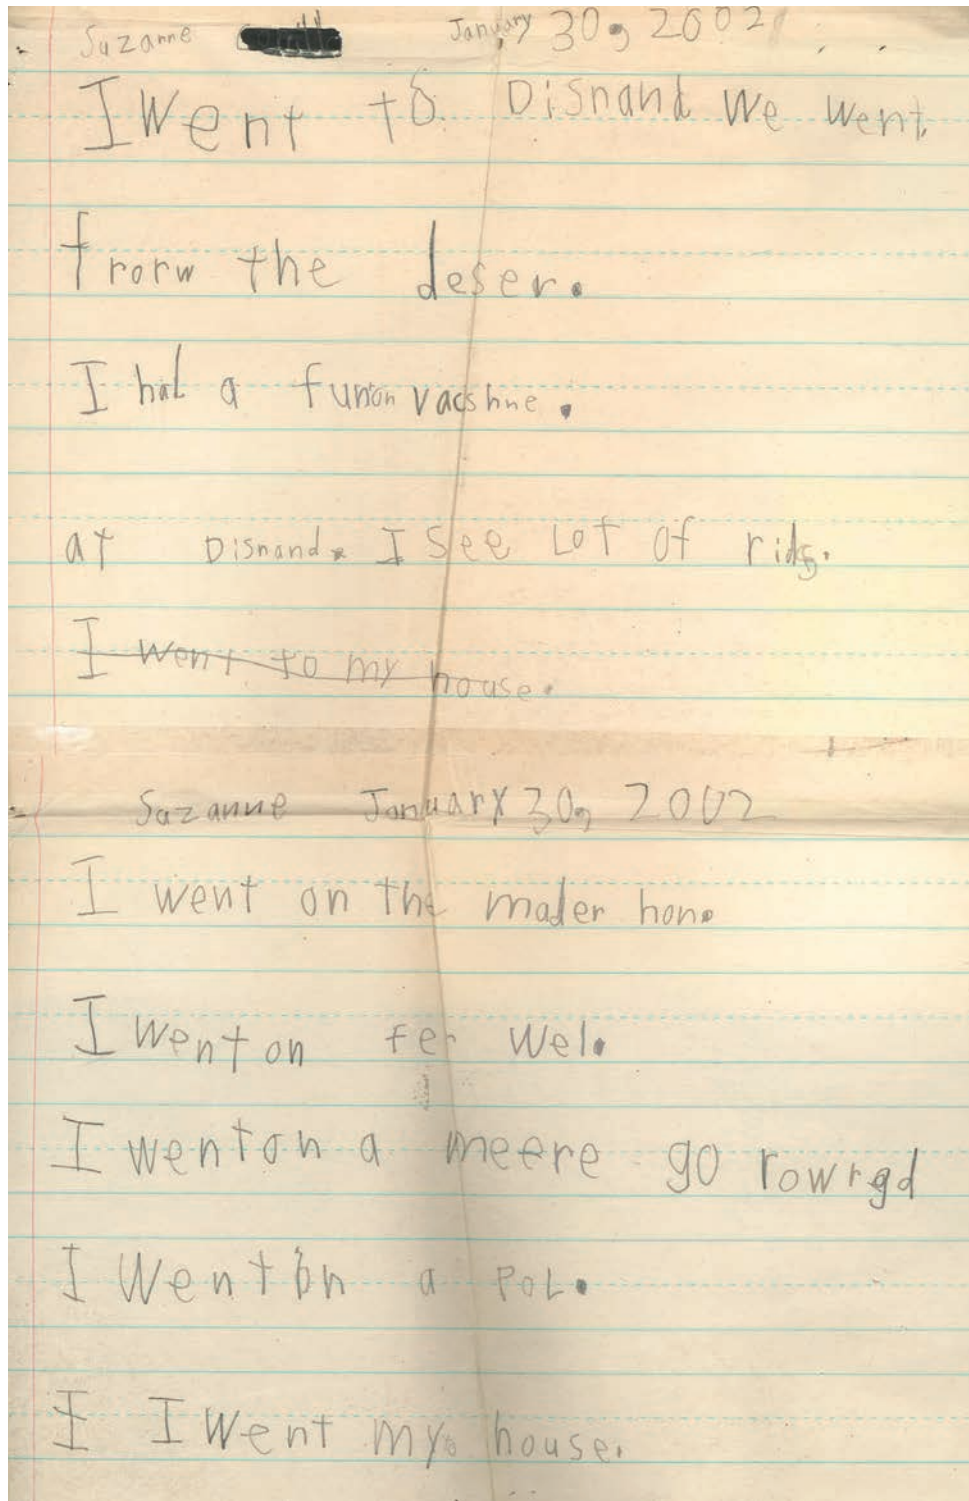 Suzanne January 30, 2002
I went to Disnand we went
frorw the deser.
I had a funon vacshne.
at Disnand. I see Lot of rids.
I went to my house.
Suzanne January 30, 2002
I went on the mader hon.
I went on fer wel.
I went on a meere go rowrgd
I went on a poL.
I I went my house.